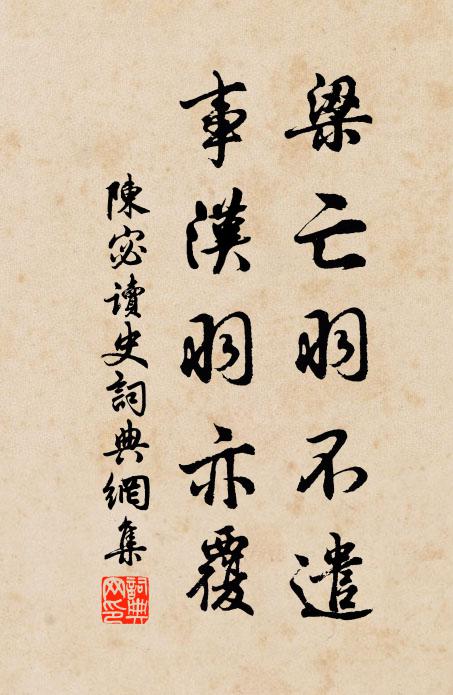 梁亡羽不遣
事漢羽亦覆
陳宓讀史詞典網集
詞典網印